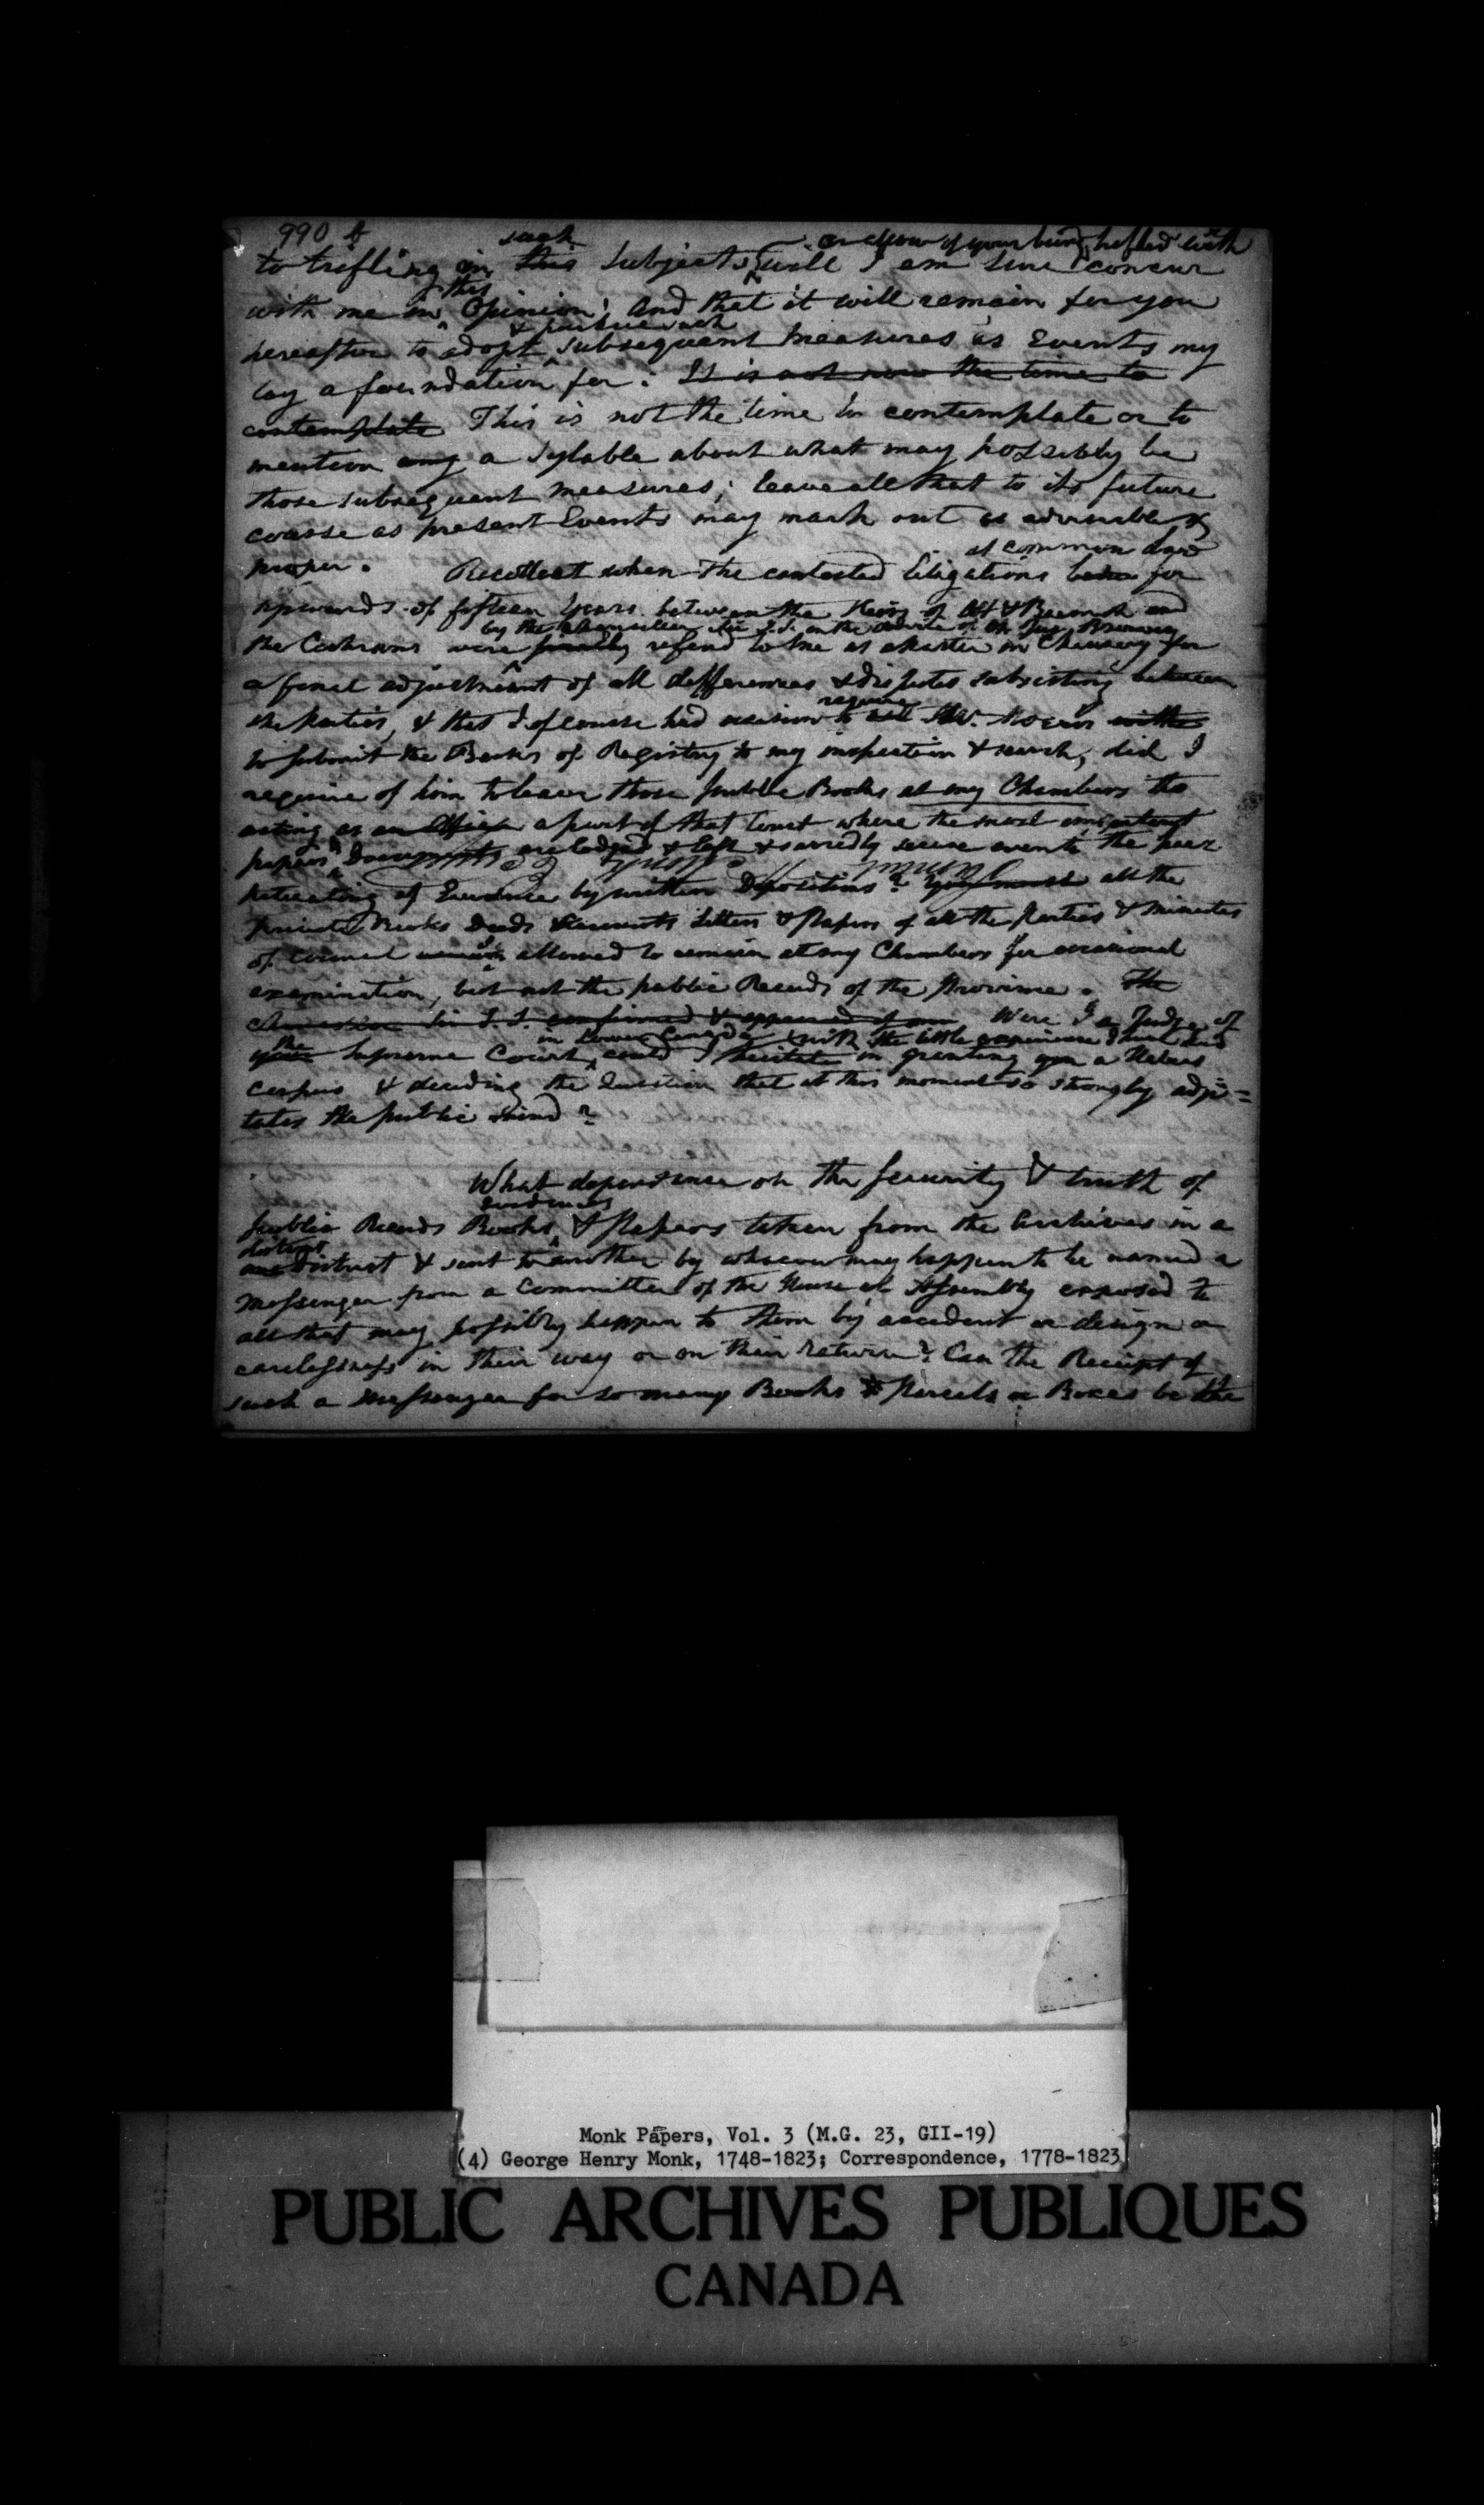 990 b
such
to trifling in this subjects, will I am sure concur
this
with me in Opinion; And that it will remain for you
& pursue such
hereafter to adopt subsequent measures as Events my
lay a foundation for. It is not now the time to
contemplate This is not the time to contemplate or to
mention any a Sylable about what may possibly be
those subsequent measures; leave all that to its future
course as present Events may mark out as adviseable &
at common Law
proper. Recollect when the contested litigations for
upwards of fifteen Years between the Heirs of and
by the Chancellor Sir on the
the Cochrans were finally referd to me as Master in Chancery for
a final adjustment of all differences & disputes subsisting between
require
the parties, & that I of course had occasion to Mr. Morris
to submit the Books of Registry to my inspection & search, did I
require of him to leave those public Books at my Chambers tho
acting as an Office apart of that Court where the most important
papers & Documents are lodged & left & sacredly secure
of Evidence by written Depositions? all the
private Books Deeds Accounts Letters & Papers of all the parties & minutes
of Council allowed to remain at my Chambers for occasional
examination, but not the public Records of the Province. The
Were I a Judge of
in Lower Canada with the little experience I have had
the
Supreme Court, could I hesitate in granting a Habeas
corpus & deciding the Question that at this moment so strongly adji=
tates the public mind?
What dependence on the security & truth of
public Records Books & Papers taken from the Archives in a
distant
one District & sent to another by whoever may happen to be named a
Messenger from a Committee of the House of Assembly exposed to
all that may possibly happen to them by accident or design or
carelessness in their way or on their return? Can the Receipt of
such a Messenger for so many Books & parcels or Boxes be the
Monk Papers, Vol. 3 (M.G. 23, GII-19)
(4) George Henry Monk, 1748-1823; Correspondence, 1778-1823
PUBLIC ARCHIVES PUBLIQUES
CANADA